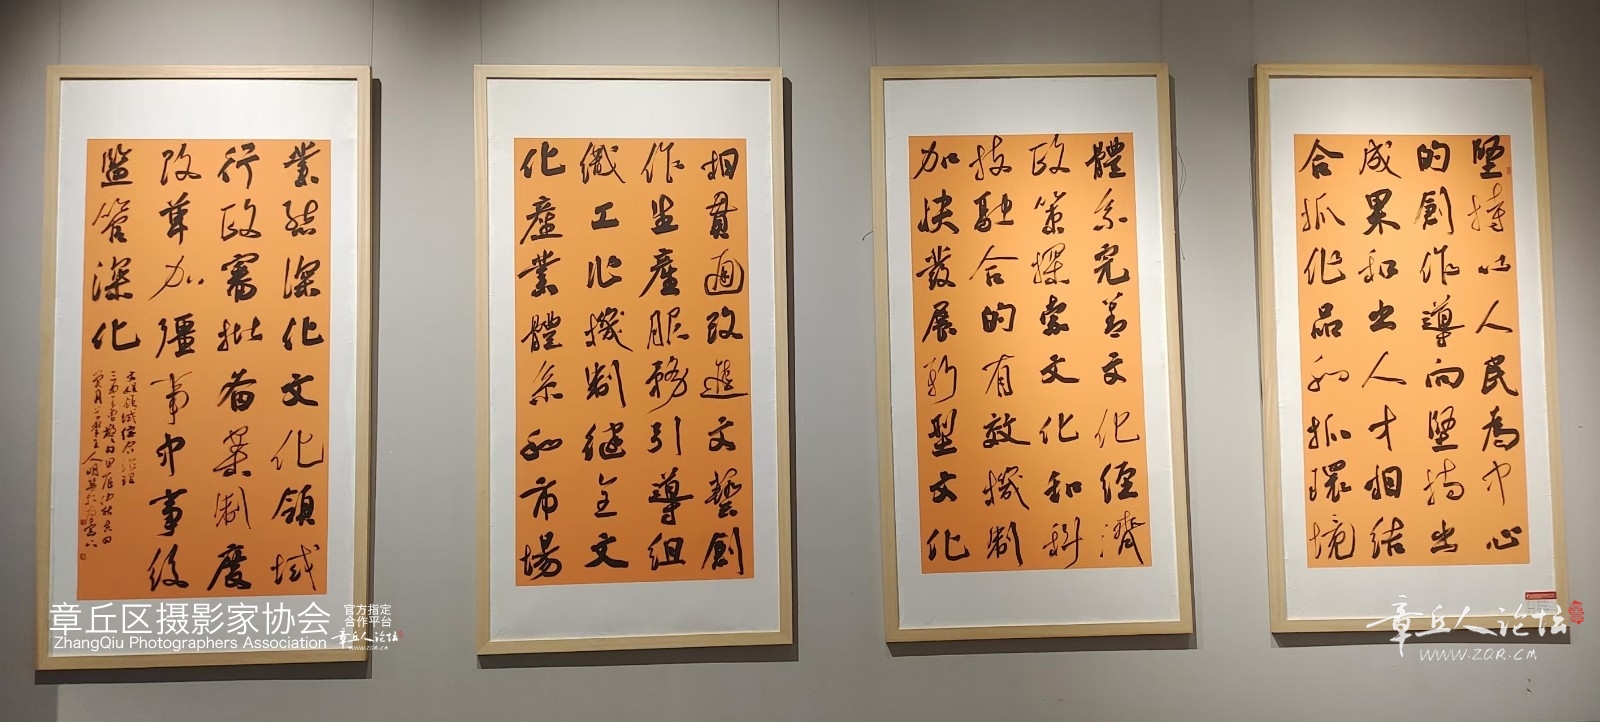 堅持以人民為中心
的創作導向堅持出
成果和出人才相結
合抓作品和抓環境
體系完善文化經濟
政策探索文化和科
技融合的有效機制
加快發展新型文化
相貫通改進文藝創
作生產服務引導組
織工作機制健全文
化產業體系和市場
業態深化文化領域
行政審批备案制度
改革加彊事中事後
監管深化
文娱領域綜合治理
章丘区摄影家协会
ZhangQiu Photographers Association
官方指定
合作平台
章丘人论坛
www.ZQR.CM
章丘人论坛
WWW.ZQR.CM